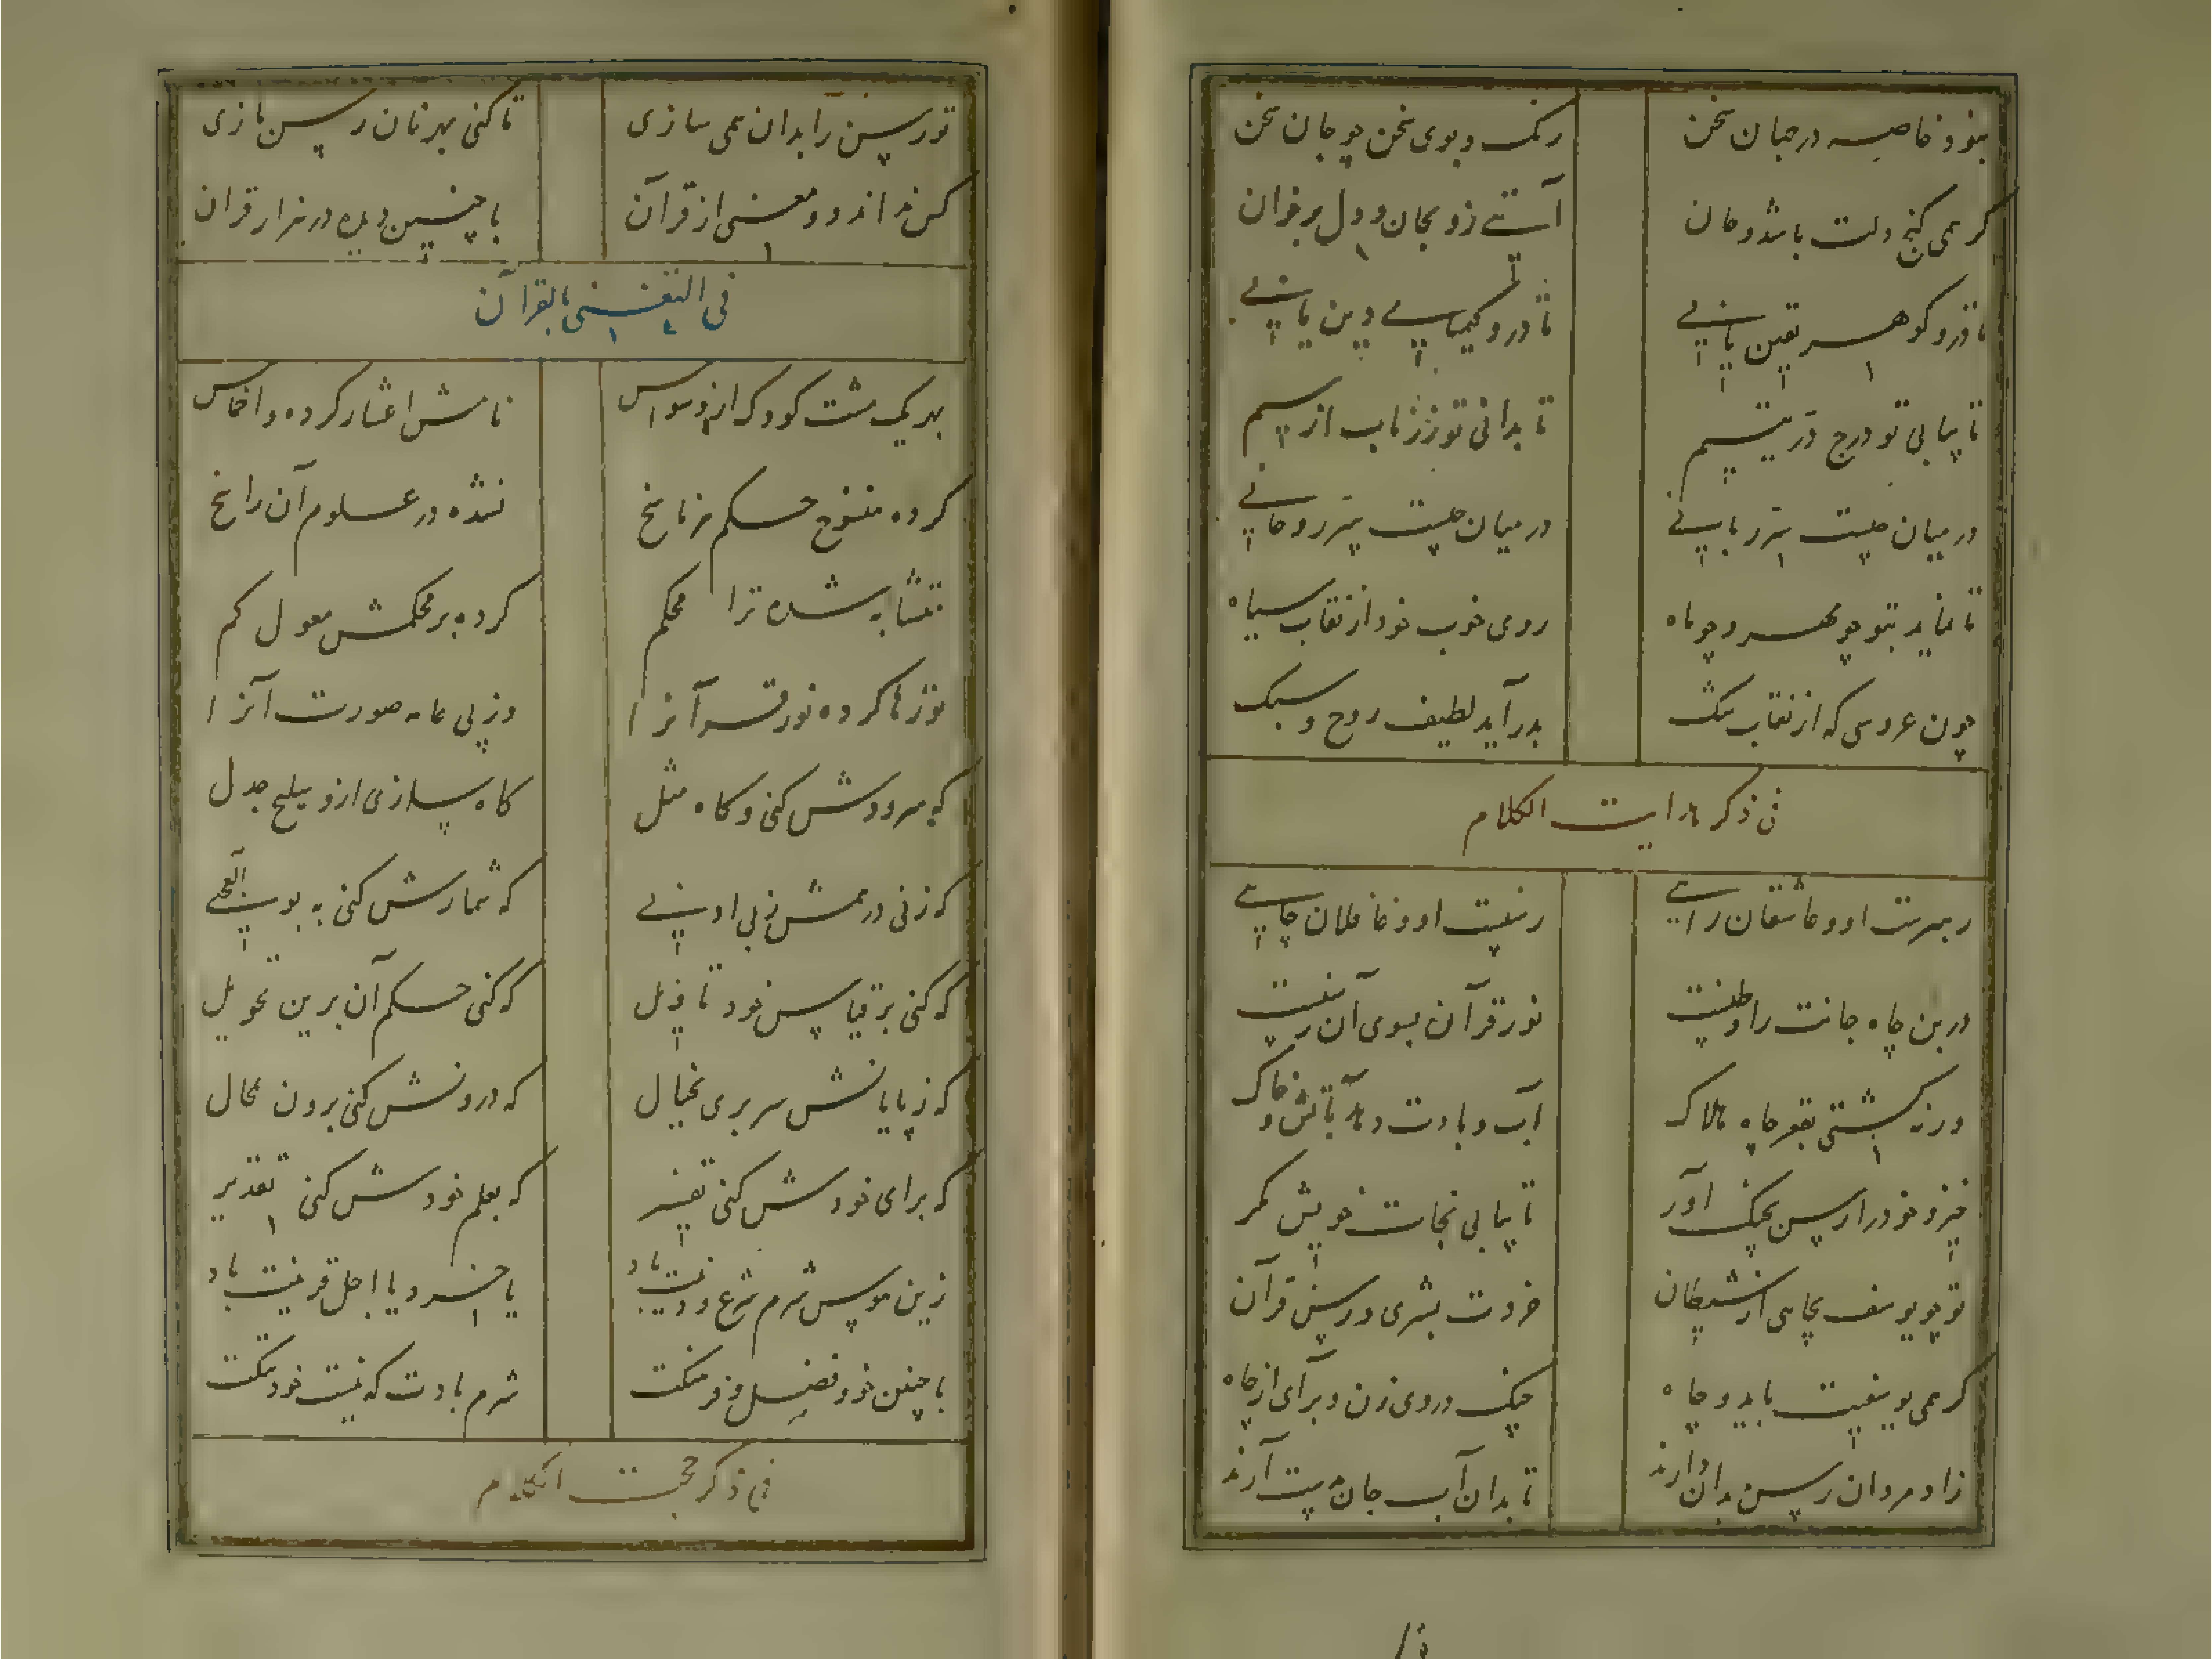 بنو و خاصه در میان سخن
رنک و بوی سخن چو جان سخن
کر همی کنج دلت باشد و جان
آیتی زو بجان و دل برخوان
تا درو کوهر یقین یابی
تا درو کیمیای دین یابی
تا بیابی تو درج در یتیم
تا بدانی تو زر ناب از سیم
در میان چیست سر ربانی
در میان چیست سر روحانی
تا نماید بتو چو مهر و چو ماه
روی خوب خود از نقاب سیاه
چون عروسی که از نقاب تنک
بدر آید لطیف روح و سبک
فی ذکر هدایت الکلام
رهبرست او و عاشقان راهی
رسنیست او و غافلان چاهی
در بن چاه جانت را وطنیست
نور قرآن بسوی آن رسنیست
ورنه کشتی بقعر چاه هلاک
آب و بادت دهد بآتش و خاک
خیز و خود را رسن بچنک آور
تا بیابی نجات خویش مکر
تو چو یوسف بچاهی از شیطان
خردت بشری و رسن قرآن
کر همی یوسفیت باید و چاه
چنک در وی زن و برآی از چاه
زاد مردان رسن بدان دارند
تا بدان آب جان بدست آرند
تو رسن را بدان همی سازی
تا کنی بهر نان رسن بازی
کس نداند دو معنی از قرآن
با چنین دیده در هزار قران
فی التغنی بالقرآن
بهر یک مشت کودک از وسواس
نامش اعشار کرده و اخماس
کرده منسوخ حکم هر ناسخ
نشده در علوم آن راسخ
متشابه شده ترا محکم
کرده بر محکمش معول کم
تو رها کرده نور قرآن را
وز پی عامه صورت آنرا
که سرودش کنی و کاه مثل
کاه سازی ازو سلیح جدل
که زنی درهمش ز بی ادبی
که شمارش کنی به بوالعجبی
که کنی بر قیاس خود تاویل
که کنی حکم آن برین تحویل
که ز پایانش سر بری بخیال
که درونش کنی برون بمحال
که برای خودش کنی تفسیر
که بعلم خودش کنی تقدیر
زین هوس شرم شرع و دینت باد
یا خرد یا اجل قرینت باد
با چنین خو و فضل و فرهنکت
شرم بادت که نیست خود ننکت
فی ذکر حجت الکلام